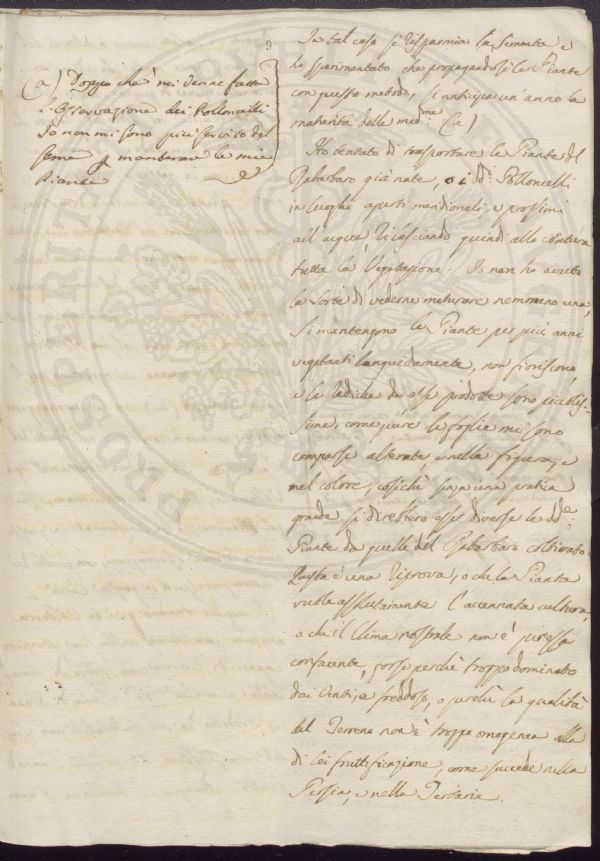 (a) Doppo che mi venne fatta
l'Osservazione dei Polloncelli
Io non mi sono più servito del
seme p. mantenere le mie
Piante
In tal caso si risparmia la Sementa e
ho sperimentato che propagandosi le Piante
con questo metodo, si anticipa un'anno la
maturità delle med.me (a)
Ho tentato di trasportare le Piante del
Rabarbaro già nate, o i dd. Polloncelli
in luoghi aperti meridionali, e prossimi
all'acque rilasciando quindi alla Natura
tutta la Vegetazione. Io non ho avuto
la sorte di vederne maturare nemmeno una;
si mantengono le Piante per più anni
vegetanti languidamente, non fioriscono,
e le radiche da esse prodotte sono piccolis-
sime, come pure le foglie mi sono
comparse alterate e nella figura, e
nel colore, cosichè senza una pratica
grande si direbbero esser diverse le dd.e
Piante da quelle del Rabarbaro coltivato.
Questa è una riprova, o che la Pianta
vuole assolutamente l'accennata cultura,
o che il Clima nostrale non è per essa
confacente, forse perchè troppo dominato
dai Venti, e freddoso, o perchè la qualità
del Terreno non è troppo omogenea alla
di lei fruttificazione, come succede nella
Persia, e nella Tartaria.
PROSPERITE